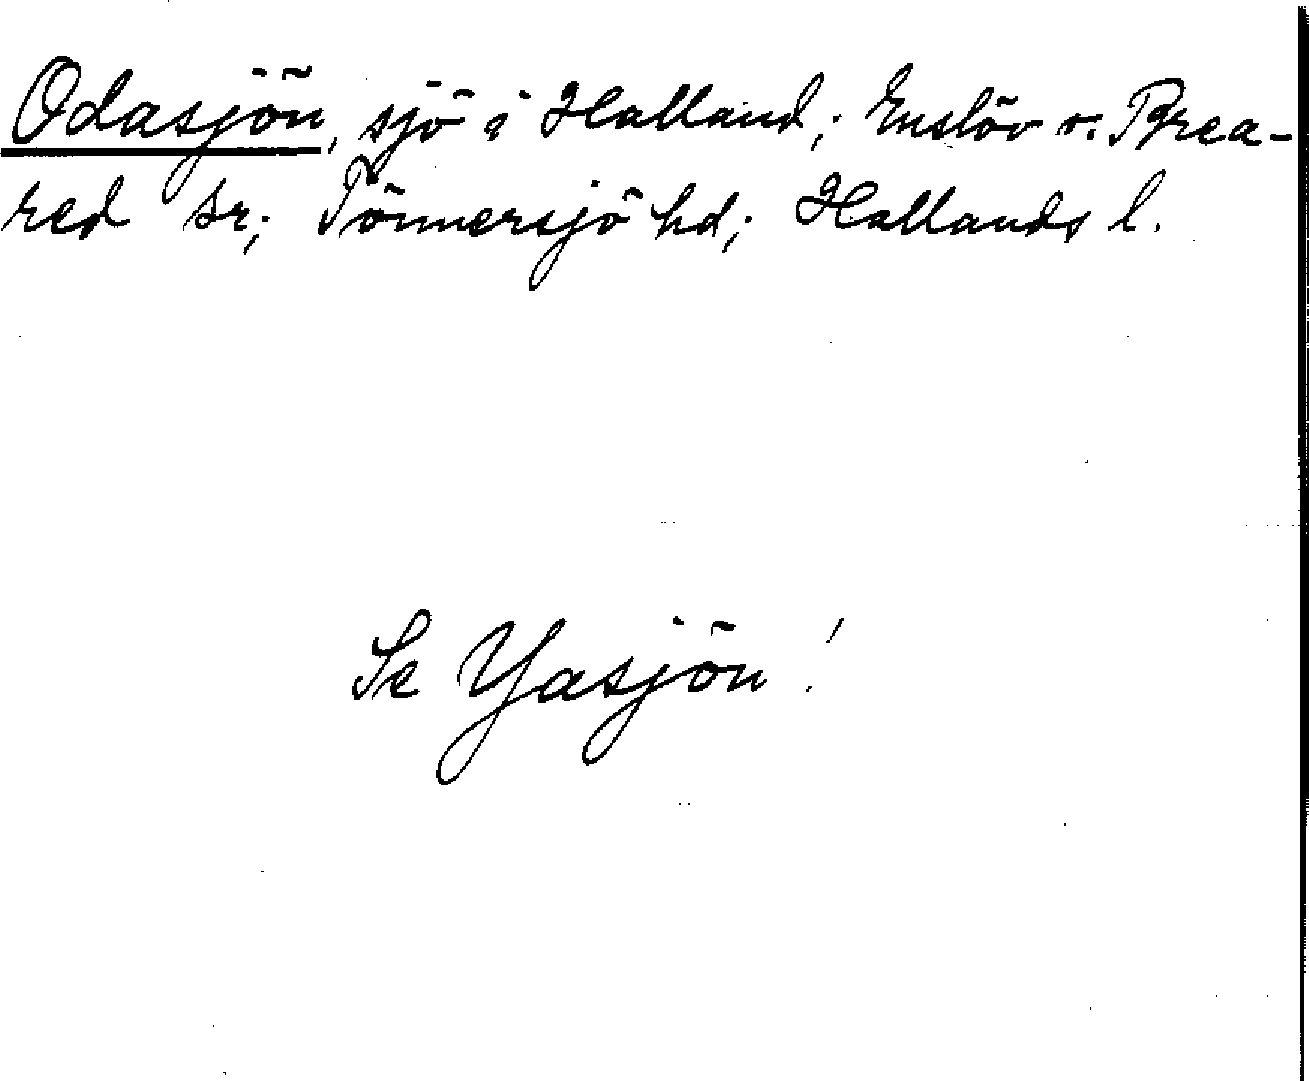 Odasjön, sjö i Halland; Enslöv o. Brea-
red sr; Tönnersjö hd; Hallands l.
Se Yasjön!